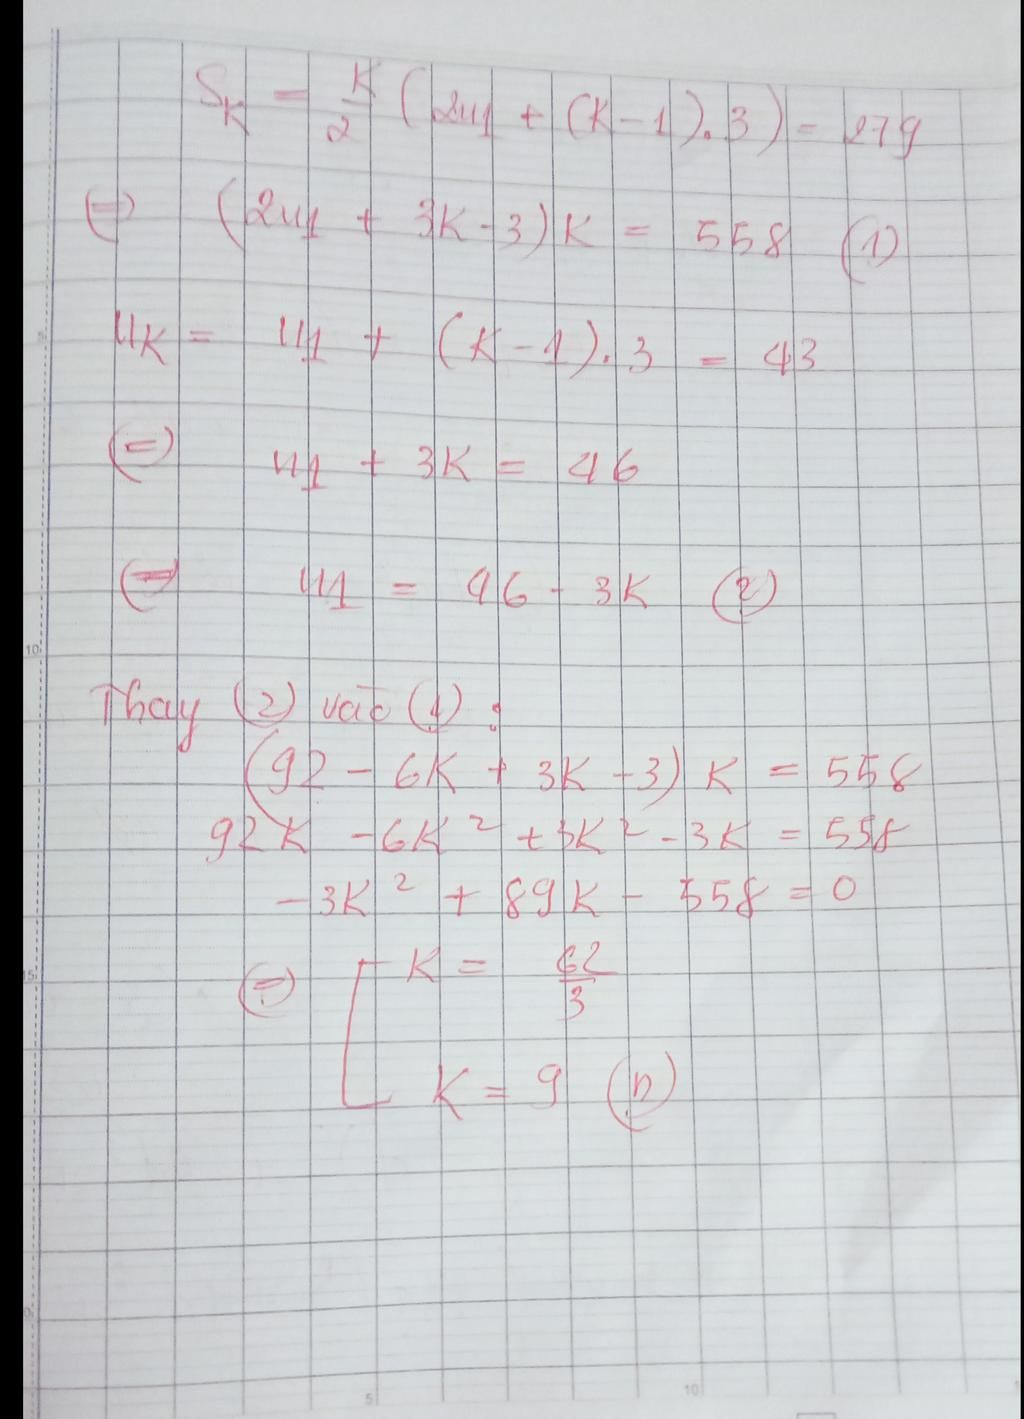 S_K = K/2 (2u1 + (K-1).3) = 279
(=) (2u1 + 3K-3)K = 558 (1)
u_K = u1 + (K-1).3 = 43
(=) u1 + 3K = 46
(=) u1 = 46 - 3K (2)
Thay (2) vào (1) :
(92 - 6K + 3K - 3) K = 558
92K - 6K² + 3K² - 3K = 558
-3K² + 89K - 558 = 0
(=) [ K = 62/3
K = 9 (n)
5
10
15
5
10